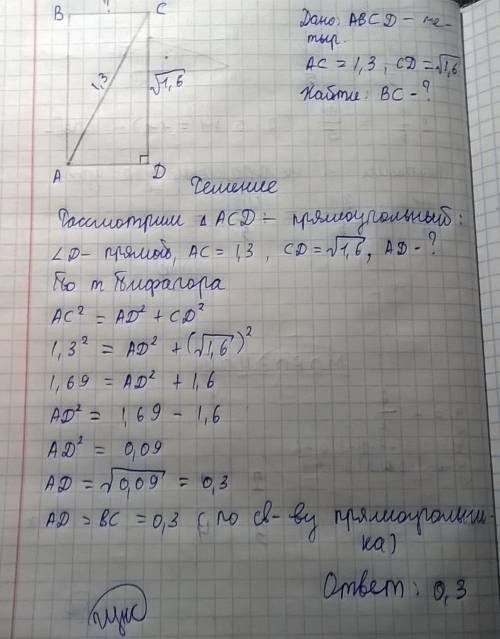 B ? C
1,3
√1,6
A D
Дано: ABCD – че-
тыр.
AC = 1,3 , CD = √1,6
Найти: BC - ?
Решение
Рассмотрим △ ACD – прямоугольный:
∠D – прямой, AC = 1,3 , CD = √1,6 , AD - ?
По т Пифагора
AC² = AD² + CD²
1,3² = AD² + (√1,6)²
1,69 = AD² + 1,6
AD² = 1,69 - 1,6
AD² = 0,09
AD = √0,09 = 0,3
AD = BC = 0,3 (по св-ву прямоугольни-
ка)
Ответ: 0,3